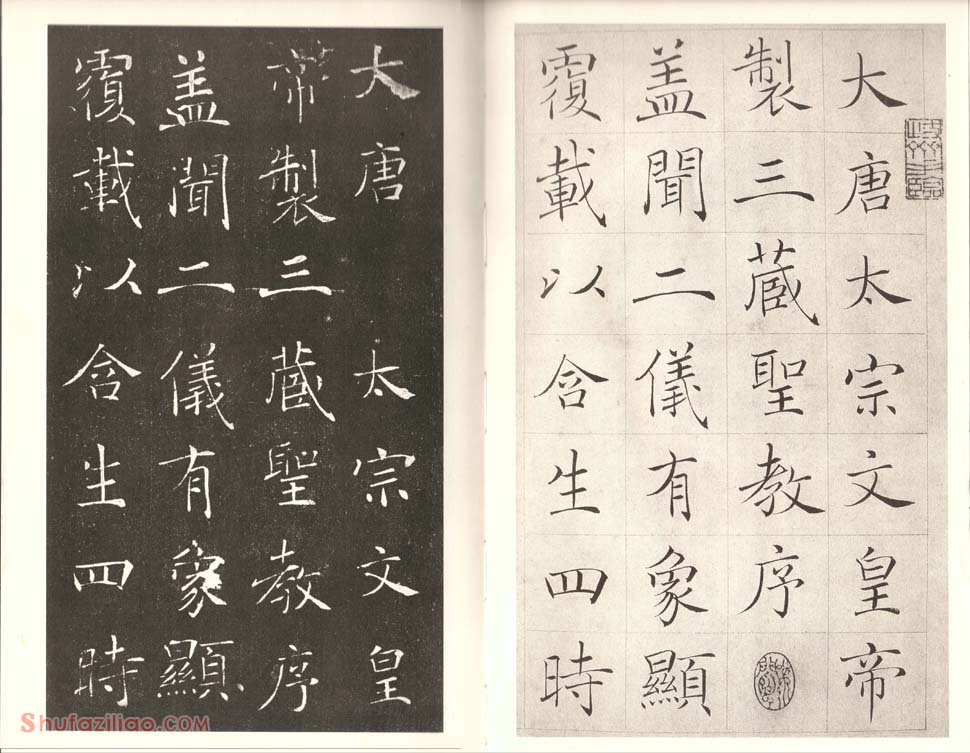 大唐太宗文皇帝
製三蔵聖教序
盖聞二儀有象顯
覆載以含生四時
大唐太宗文皇
帝製三蔵聖教序
盖聞二儀有象顯
覆載以含生四時
Shufaziliao.com